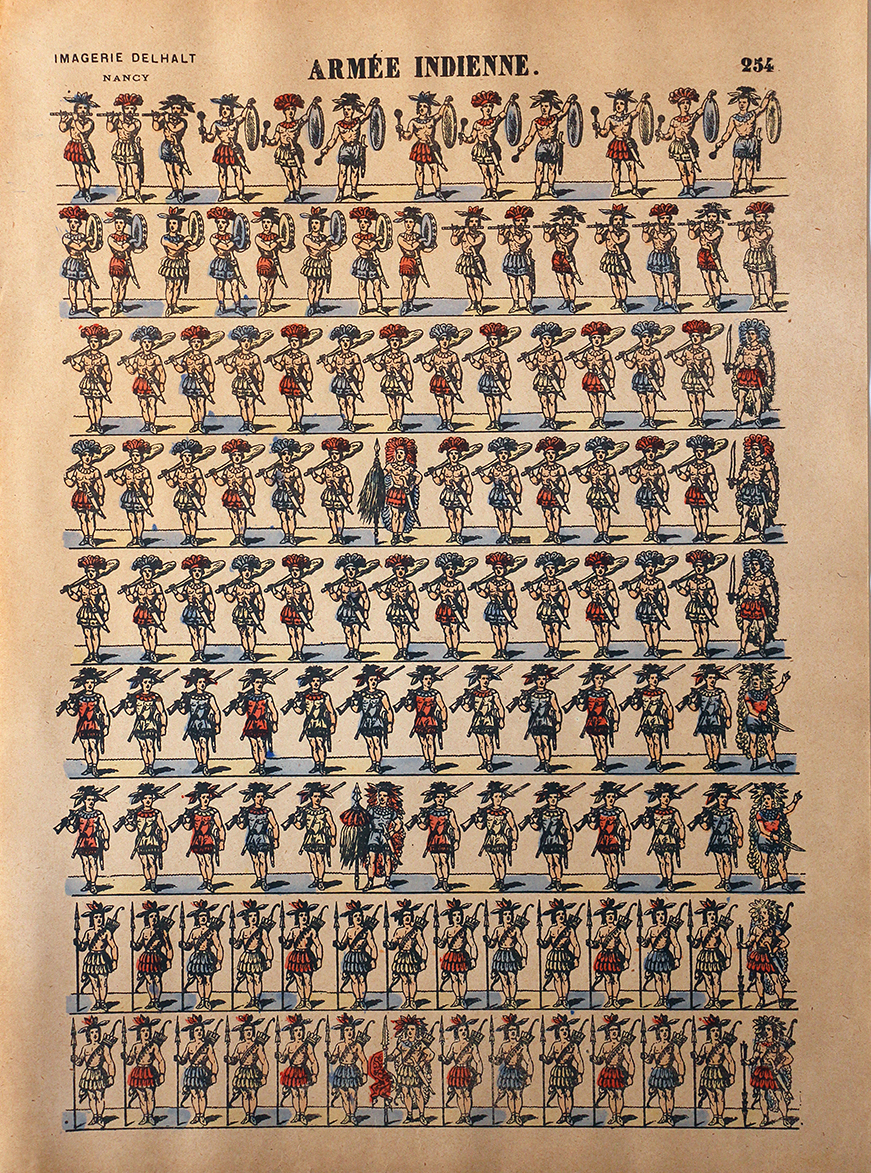 IMAGERIE DELHALT
NANCY
ARMÉE INDIENNE.
254